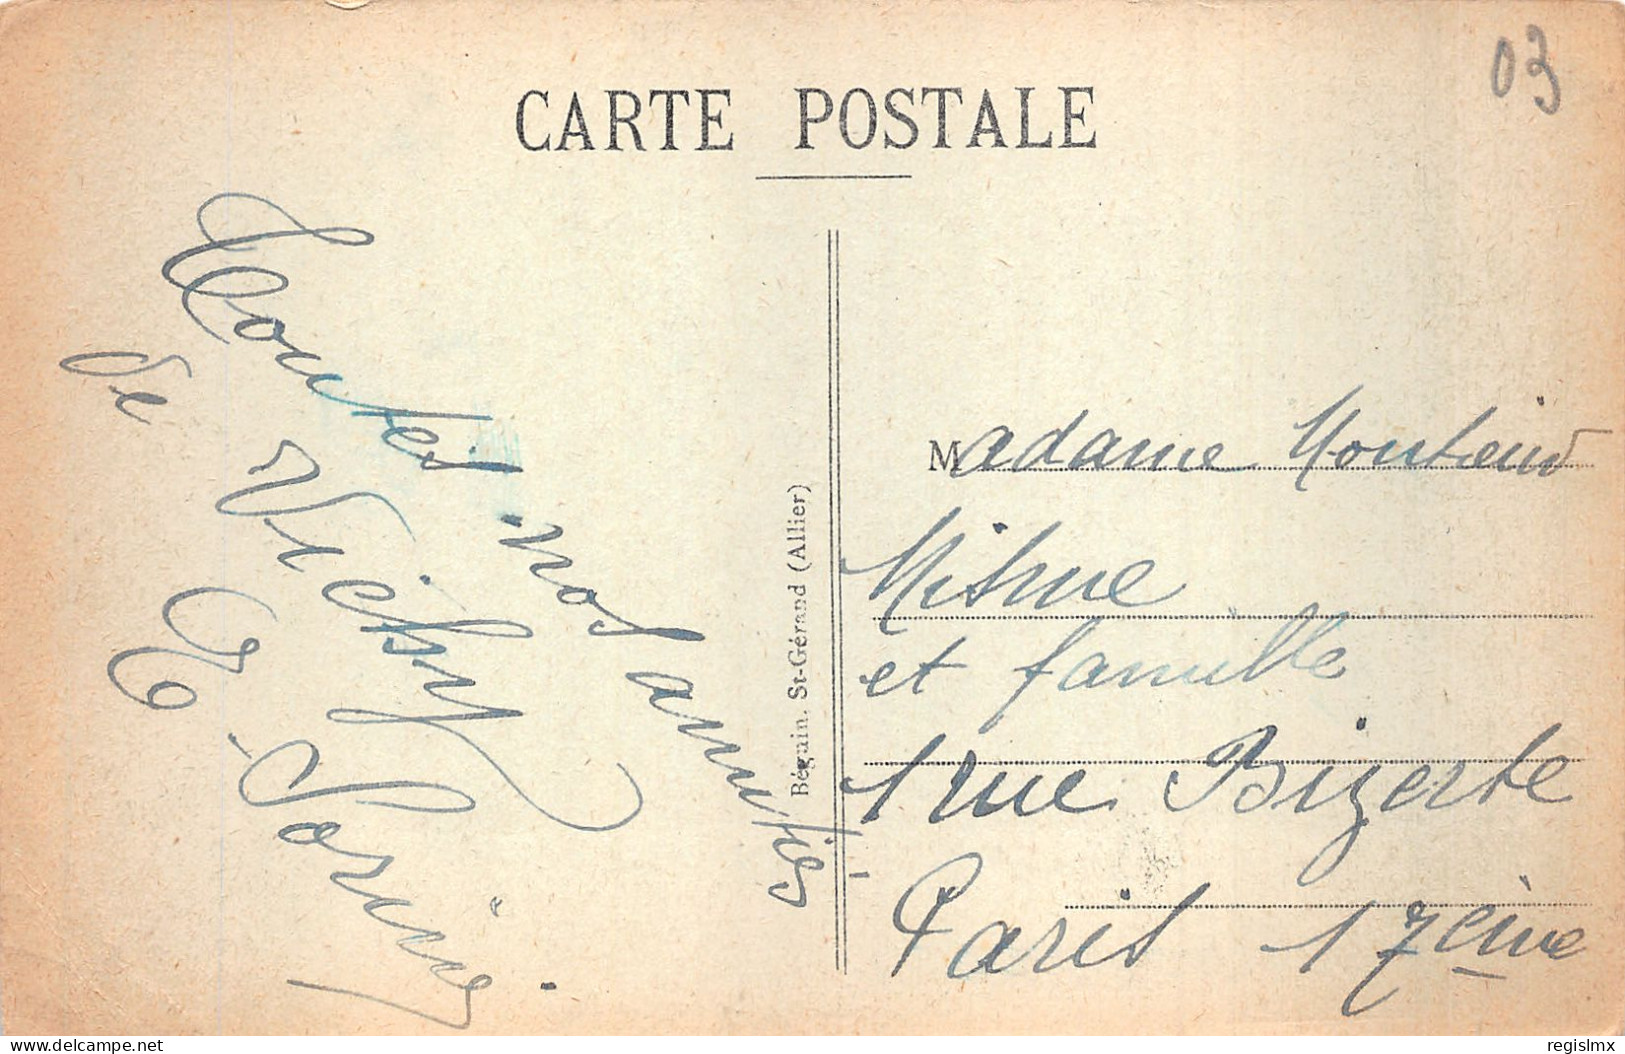 03
CARTE POSTALE
Toutes nos amitiés
de Vichy
Béguin, St-Gérand (Allier)
Madame
et famille
1 rue Bizerte
Paris 17ème
delcampe.net
regislmx